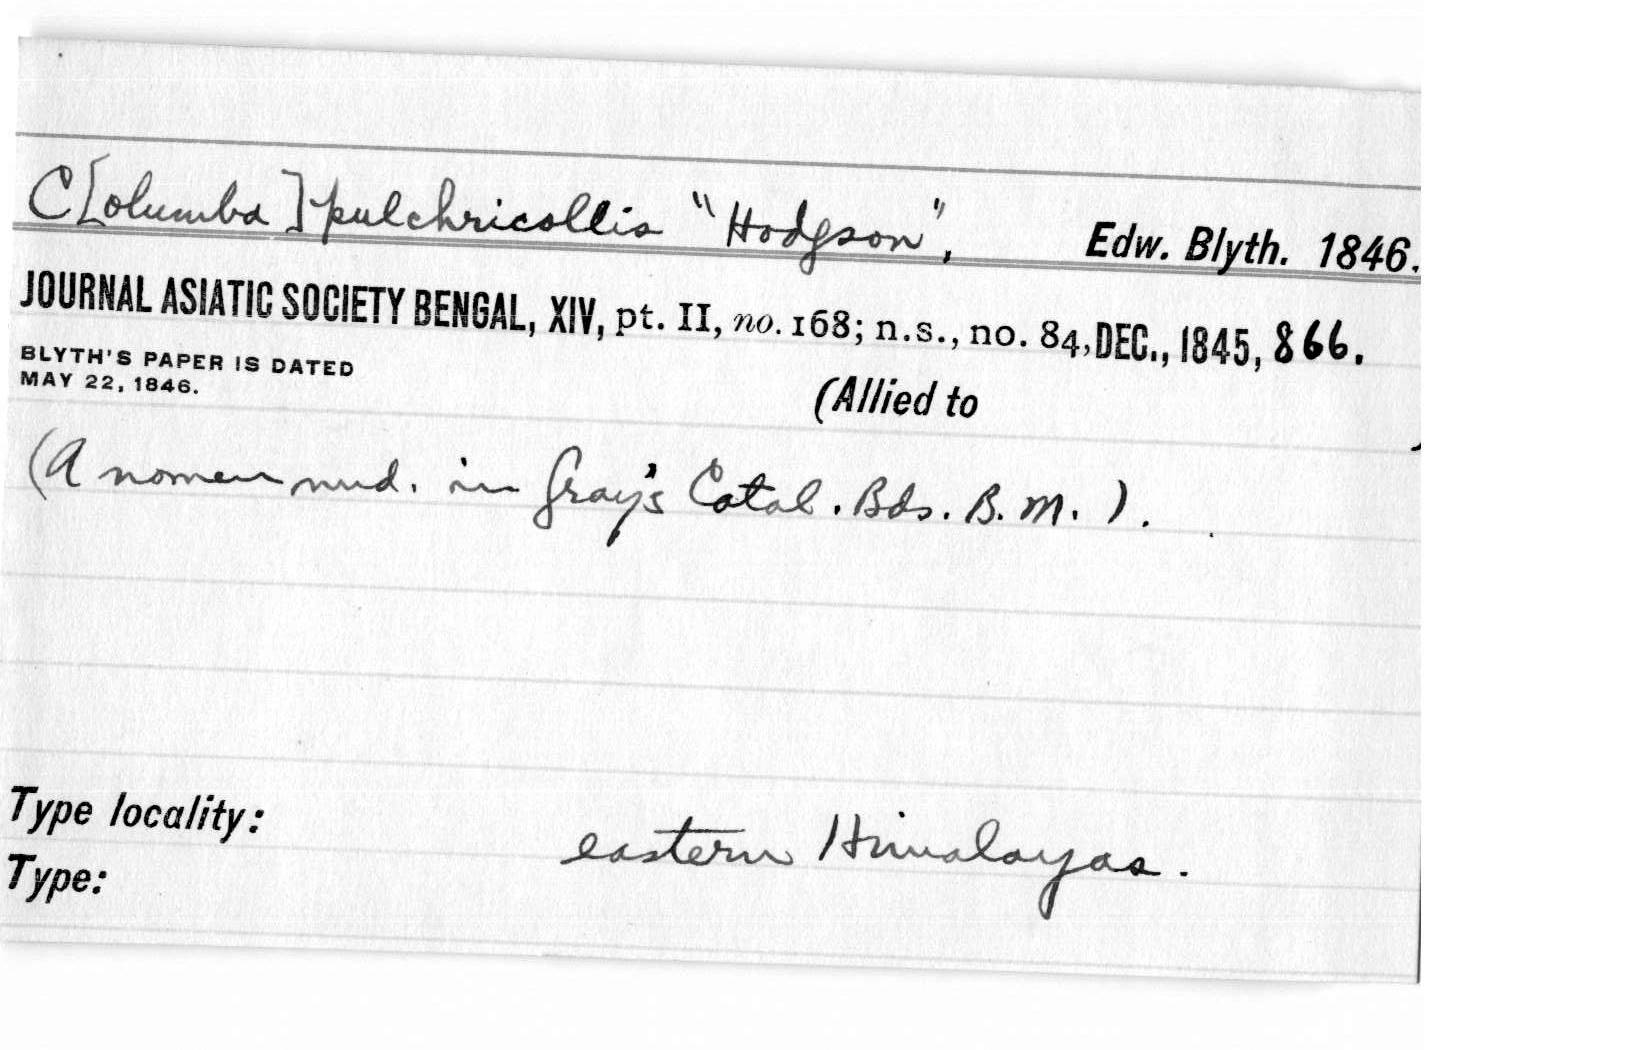 C[olumba] pulchricollis "Hodgson", Edw. Blyth. 1846.
JOURNAL ASIATIC SOCIETY BENGAL, XIV, pt. II, no. 168; n.s., no. 84, DEC., 1845, 866.
BLYTH'S PAPER IS DATED
MAY 22, 1846.
(Allied to )
(A nomen nud. in Gray's Catal. Bds. B. M. ).
Type locality: eastern Himalayas.
Type: